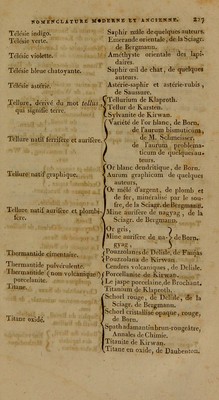 NOMENCLATURE MODERNE ET ANCIENNE. 219
Télésie indigo. Saphir mâle de quelques auteurs.
Télésie verte. Emeraude orientale, de la Sciagr.
de Bergmann.
Télésie violette. Améthyste orientale des lapi-
daires.
Télésie bleue chatoyante. Saphir œil de chat, de quelques
auteurs.
Télésie astérie. Astérie-saphir et astérie-rubis,
de Saussure.
Tellure, dérivé du mot tellus
qui signifie terre.
Tellurium de Klaproth.
Tellur de Karsten.
Sylvanite de Kirwan.
Tellure natif ferrifère et aurifère.
Variété de l'or blanc, de Born,
de l'aurum bismuticum,
de M. Schmeisser,
de l'aurum problema-
ticum de quelques au-
teurs.
Tellure natif graphique.
Or blanc dendritique, de Born.
Aurum graphicum de quelques
auteurs,
Tellure natif aurifère et plombi-
fère.
Or mêlé d'argent, de plomb et
de fer, minéralisé par le sou-
fre, de la Sciagr. de Bergmann.
Mine aurifère de nagyag, de la
Sciagr. de Bergmann.
Or gris,
Mine aurifère du na-
gyag,
de Born.
Thermantide cimentaire. Pouzzolane de Delisle, de Faujas
Pouzzolana de Kirwan.
Thermantide pulvérulente. Cendres volcaniques, de Delisle.
Thermantide (non volcanique)
porcelanite.
Porcellanite de Kirwan.
Le jaspe porcelaine, de Brochant.
Titane. Titanium de Klaproth.
Titane oxidé.
Schorl rouge, de Delisle, de la
Sciagr. de Bergmann.
Schorl cristallisé opaque, rouge,
de Born.
Spath adamantin brun-rougeâtre,
Annales de Chimie.
Titanite de Kirwan.
Titane en oxide, de Daubenton.